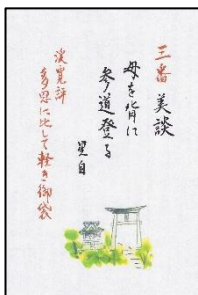 三番 美談
母を背に
参道登る
晃自
渓寛評
多恩に比して軽き御袋